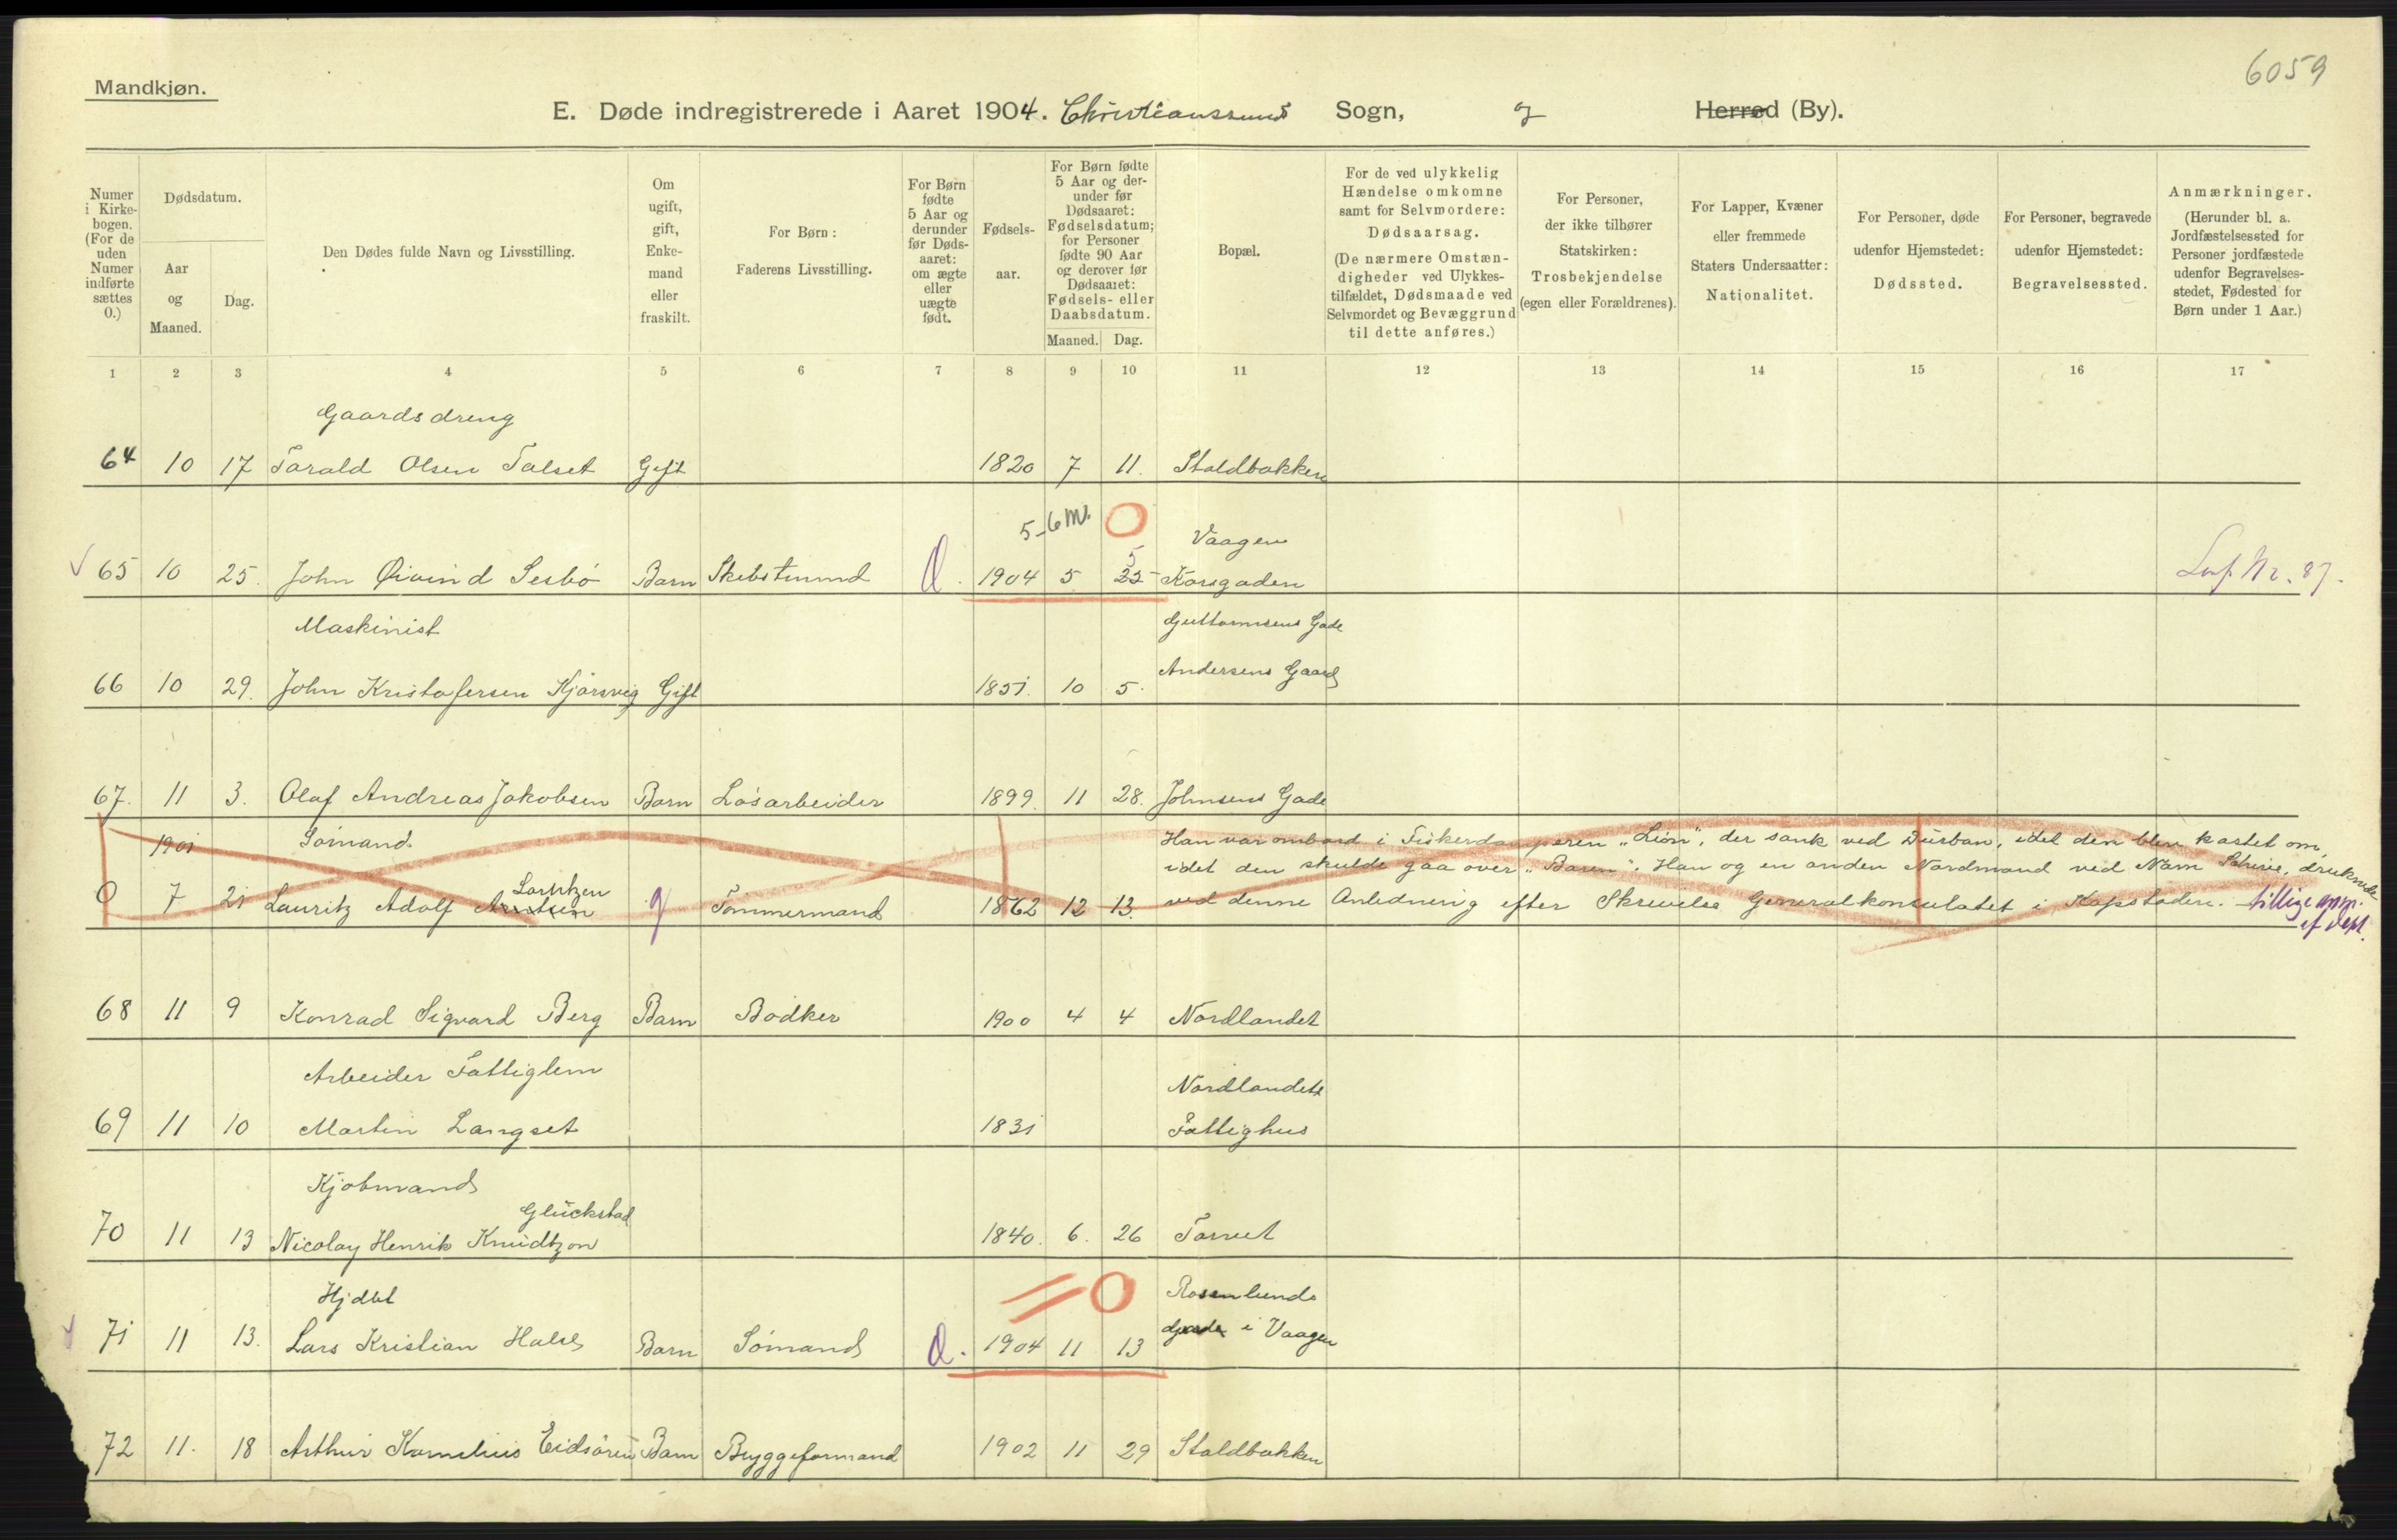 6059
Mandkjøn.
E. Døde indregistrerede i Aaret 1904. Christianssund Sogn, Herred (By).
Numer i Kirkebogen. (For de uden Numer indførte sættes 0.)
Dødsdatum.
Aar og Maaned.
Dag.
Den Dødes fulde Navn og Livsstilling.
Om ugift, gift, Enkemand eller fraskilt.
For Børn: Faderens Livsstilling.
For Børn fødte 5 Aar og derunder før Dødsaaret: om ægte eller uægte født.
Fødselsaar.
For Børn fødte 5 Aar og derunder før Dødsaaret: Fødselsdatum; for Personer fødte 90 Aar og derover før Dødsaaret: Fødsels- eller Daabsdatum.
Maaned. Dag.
Bopæl.
For de ved ulykkelig Hændelse omkomne samt for Selvmordere: Dødsaarsag. (De nærmere Omstændigheder ved Ulykkestilfældet, Dødsmaade ved Selvmordet og Bevæggrund til dette anføres.)
For Personer, der ikke tilhører Statskirken: Trosbekjendelse (egen eller Forældrenes).
For Lapper, Kvæner eller fremmede Staters Undersaatter: Nationalitet.
For Personer, døde udenfor Hjemstedet: Dødssted.
For Personer, begravede udenfor Hjemstedet: Begravelsessted.
Anmærkninger. (Herunder bl. a. Jordfæstelsessted for Personer jordfæstede udenfor Begravelsesstedet, Fødested for Børn under 1 Aar.)
1 2 3 4 5 6 7 8 9 10 11 12 13 14 15 16 17
Gaardsdreng
64 10 17 Tarald Olsen Talset Gift 1820 7 11. Staldbakken
5-6 m. 0 Vaagen
5
65 10 25. John Øivind Sesbø Barn Skibstmmd 1904 5 25 Korsgaden 87.
Maskinist Guttormsens Gade
Andersens Gaard
66 10 29. John Kristofersen Kjørsvig Gift 1851. 10 5.
67. 11 3. Olaf Andreas Jakobsen Barn Løsarbeider 1899. 11 28. Johnsens Gade
1901 Sømand. Han var ombord i Fiskerdamperen "Lion", der sank ved Durban, idet den blev kastet om,
idet den skulde gaa over "Baren". Han og en anden Nordmand ved Navn druknede
Lauritzen
0 7 21 Lauritz Adolf g Tømmermand 1862 12 13. ved denne Anledning efter Skrivelse Generalkonsulatet i Kapstaden. tillige anm.
af Dept.
68 11 9 Konrad Sigvard Berg Barn Bødker 1900 4 4 Nordlandet
Arbeider Fattiglem Nordlandets
69 11 10 Martin Langset 1831 Fattighus
Kjøbmand
Glückstad
70 11 13 Nicolay Henrik Knudtzon 1840. 6. 26 Torvet
Hjdbt 0 Rosenlunds
71 11 13. Lars Kristian Halse Barn Sømand 1904 11 13 i Vaagen
72 11. 18 Arthur Kornelius Eidsøren Barn Byggeformand 1902 11 29 Staldbakken